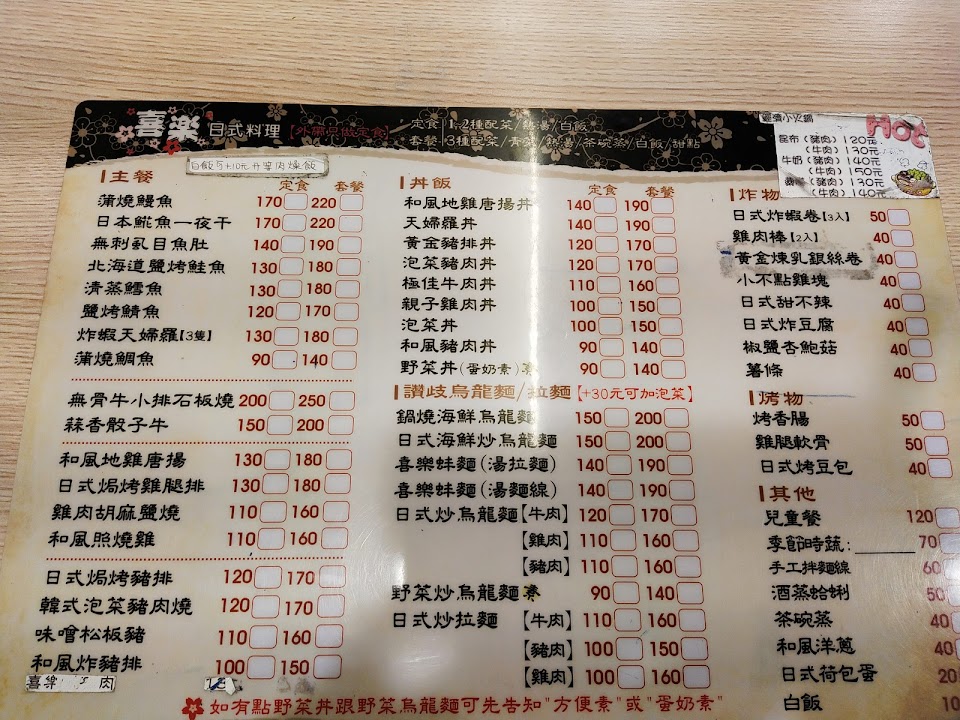 喜樂 日式料理【外帶只做定食】
定食 1,2種配菜/熱湯/白飯
套餐 3種配菜/青菜/熱湯/茶碗蒸/白飯/甜點
白飯可+10元升等肉燥飯
主餐
定食 套餐
蒲燒鰻魚 170 220
日本䱛魚一夜干 170 220
無刺虱目魚肚 140 190
北海道鹽烤鮭魚 130 180
清蒸鱈魚 130 180
鹽烤鯖魚 120 170
炸蝦天婦羅【3隻】 130 180
蒲燒鯛魚 90 140
無骨牛小排石板燒 200 250
蒜香骰子牛 150 200
和風地雞唐揚 130 180
日式焗烤雞腿排 130 180
雞肉胡麻鹽燒 110 160
和風照燒雞 110 160
日式焗烤豬排 120 170
韓式泡菜豬肉燒 120 170
味噌松板豬 110 160
和風炸豬排 100 150
喜樂 肉
丼飯
定食 套餐
和風地雞唐揚丼 140 190
天婦羅丼 140 190
黃金豬排丼 120 170
泡菜豬肉丼 120 170
極佳牛肉丼 110 160
親子雞肉丼 100 150
泡菜丼 100 150
和風豬肉丼 90 140
野菜丼(蛋奶素) 90 140
讚岐烏龍麵/拉麵【+30元可加泡菜】
鍋燒海鮮烏龍麵 150 200
日式海鮮炒烏龍麵 150 200
喜樂蚌麵(湯拉麵) 140 190
喜樂蚌麵(湯麵線) 140 190
日式炒烏龍麵【牛肉】 120 170
【雞肉】 110 160
【豬肉】 110 160
野菜炒烏龍麵 90 140
日式炒拉麵【牛肉】 110 160
【豬肉】 100 150
【雞肉】 100 160
經濟小火鍋
Hot
昆布(豬肉)120元
(牛肉)130元
牛奶(豬肉)140元
(牛肉)150元
(豬肉)130元
(牛肉)140元
炸物
日式炸蝦卷【3入】 50
雞肉棒【2入】 40
黃金煉乳銀絲卷 40
小不點雞塊 40
日式甜不辣 40
日式炸豆腐 40
椒鹽杏鮑菇 40
薯條 40
烤物
烤香腸 50
雞腿軟骨 50
日式烤豆包 40
其他
兒童餐 120
季節時蔬: 70
手工拌麵線 60
酒蒸蛤蜊 50
茶碗蒸 40
和風洋蔥 40
日式荷包蛋 20
白飯 10
如有點野菜丼跟野菜烏龍麵可先告知"方便素"或"蛋奶素"